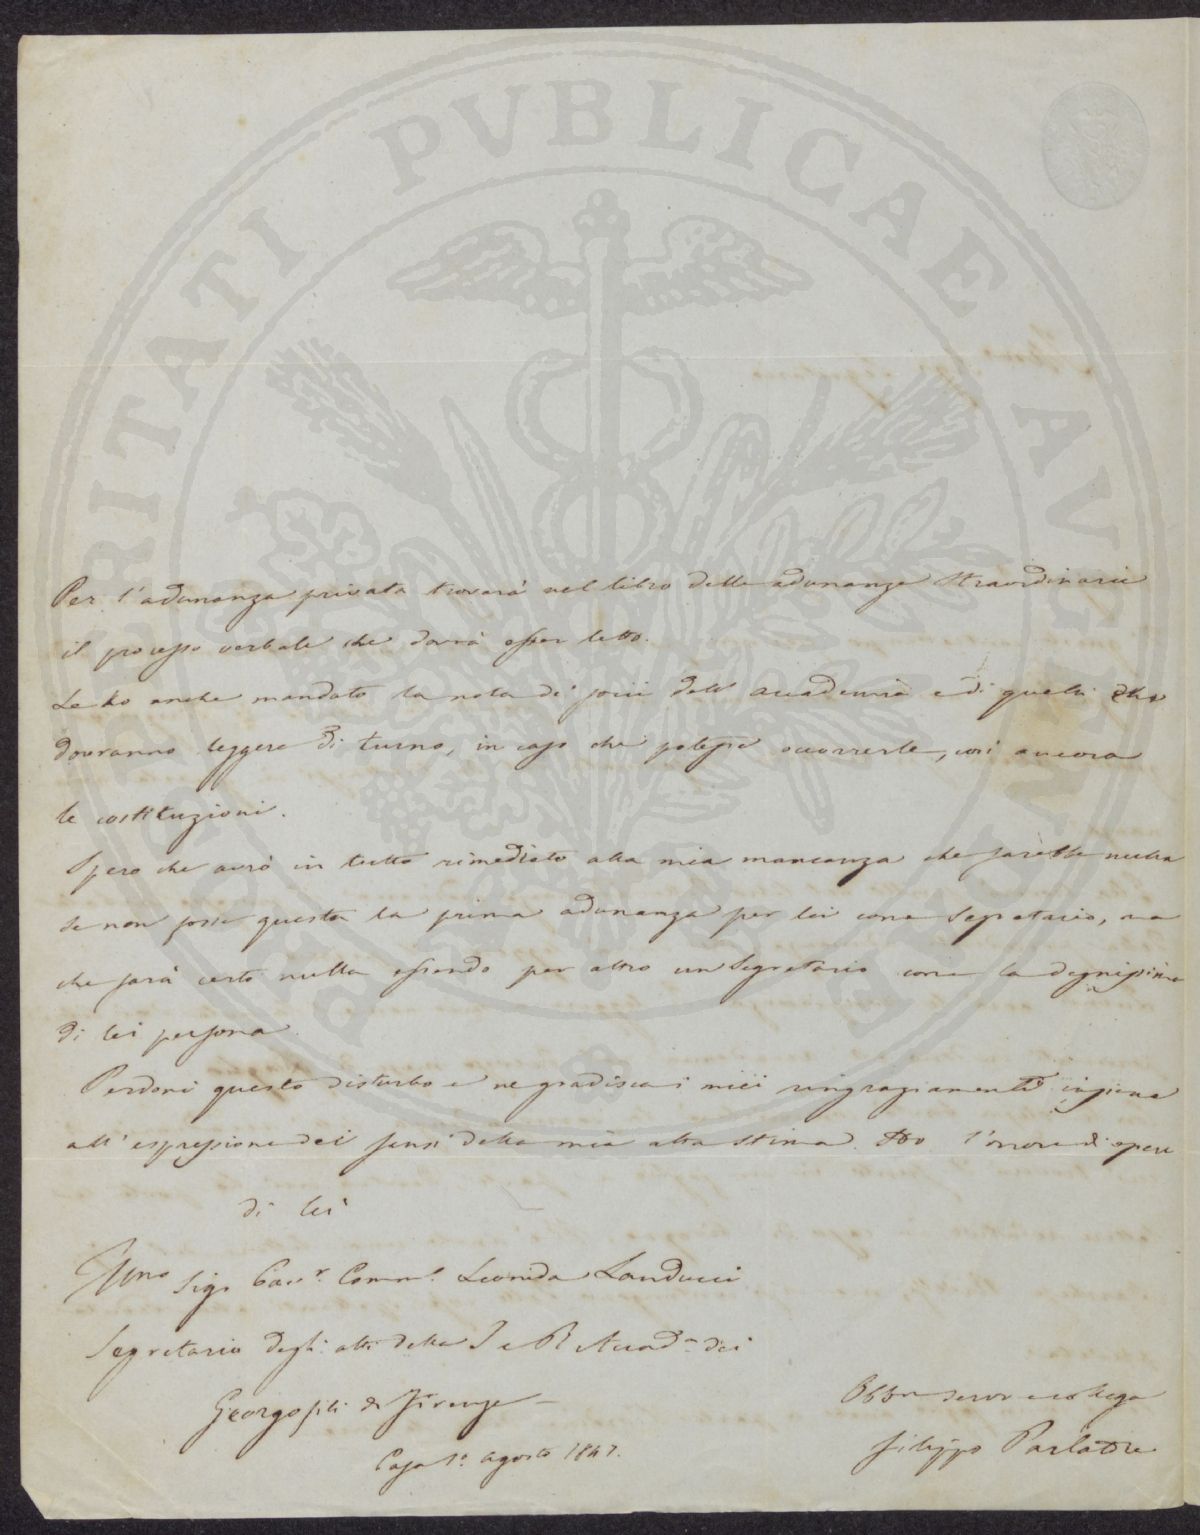 PROSPERITATI PVBLICAE AVGENDAE
Per l'adunanza privata troverà nel libro delle adunanze straordinarie
il processo verbale che dovrà esser letto.
Le ho anche mandato la nota dei socii dell'accademia e di quelli che
dovranno leggere di turno, in caso che potesse occorrerle, così ancora
le costituzioni.
Spero che avrò in tutto rimediato alla mia mancanza che sarebbe nulla
se non fosse questa la prima adunanza per lei come Segretario, ma
che sarà certo nulla essendo per altro un Segretario come la degnissima
di lei persona.
Perdoni questo disturbo e ne gradisca i miei ringraziamenti insieme
all'espressione dei sensi della mia alta stima. Ho l'onore di essere
di lei
Illmo Sigr Cavr. Comm. Leonida Landucci
Segretario degli atti della I e R Accad.a dei
Georgofili di Firenze
Casa 1º agosto 1847.
Obbmo servo e collega
Filippo Parlatore